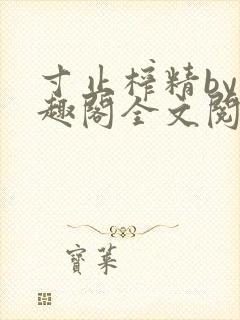 寸止榨精by
趣阁全文阅
寶葉